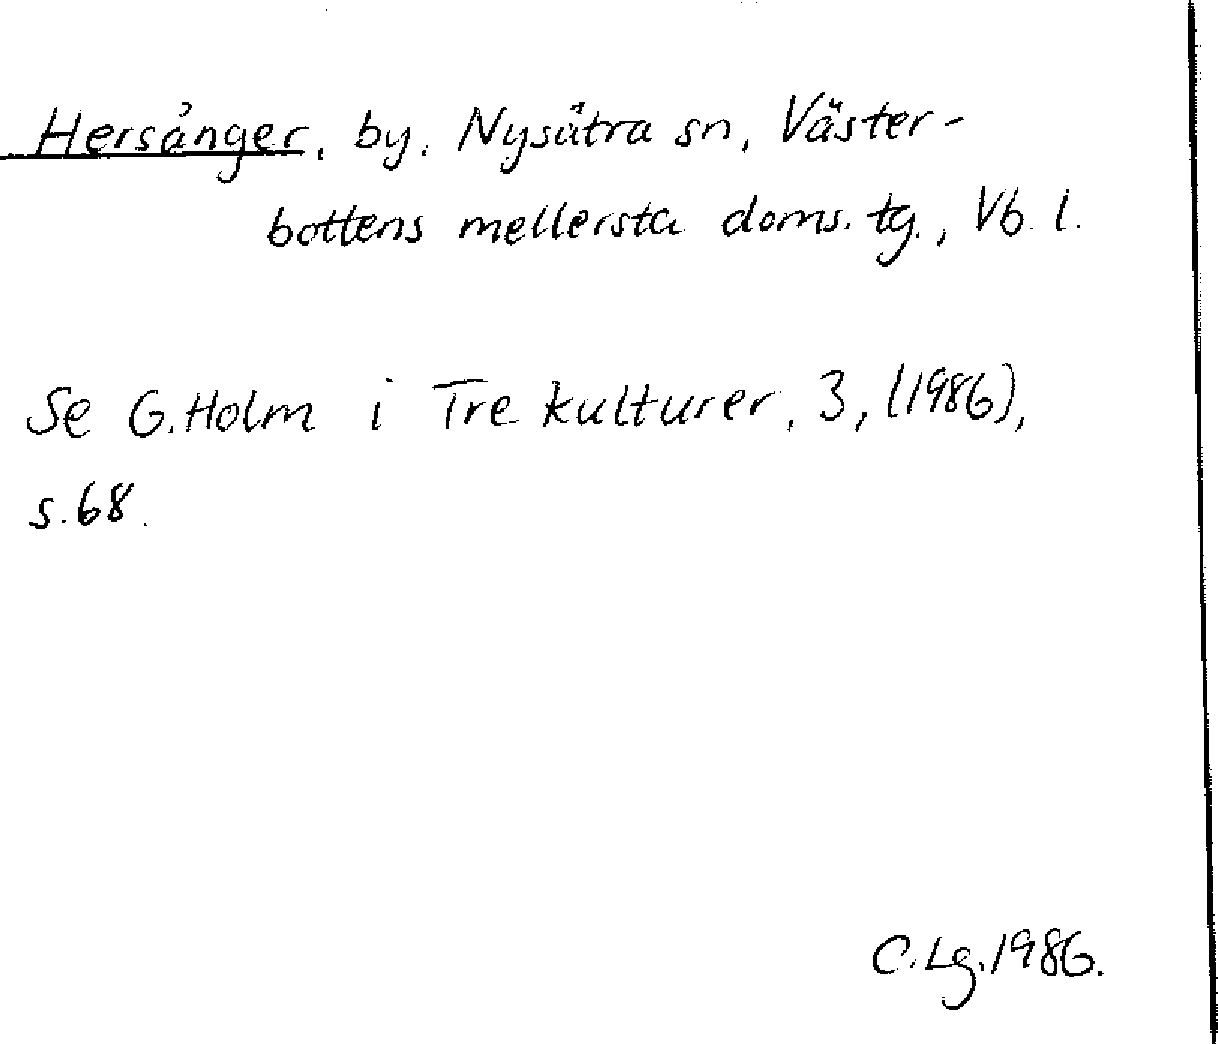 Hersånger, by, Nysätra sn, Väster-
bottens mellersta doms. tg., Vb. l.
Se G. Holm i Tre kulturer, 3, (1986),
s. 68.
C. Lg. 1986.